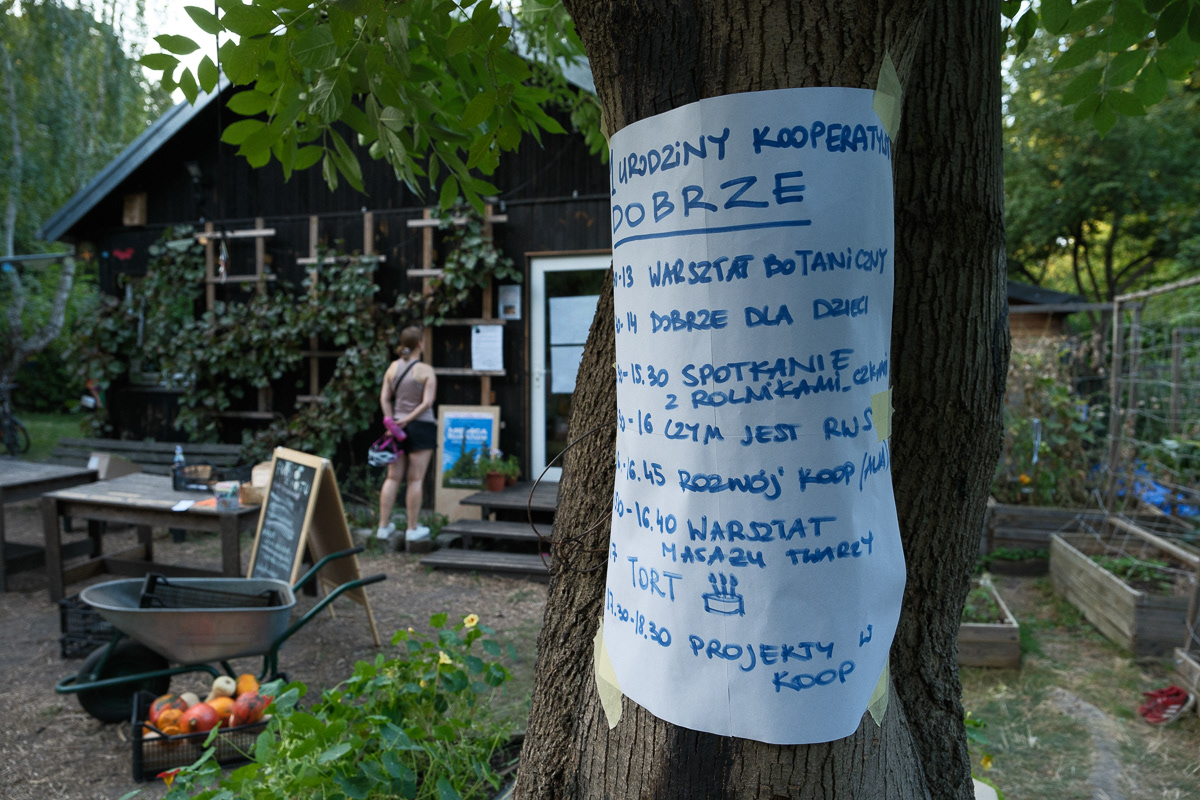 URODZINY KOOPERATYW
DOBRZE
-13 WARSZTAT BOTANICZNY
-14 DOBRZE DLA DZIECI
-15.30 SPOTKANIE
Z ROLNIKAMI_CZKAMI
-16 CZYM JEST RWS
-16.45 ROZWÓJ KOOP (ALA)
-16.40 WARSZTAT
MASAŻU TWARZY
TORT
17.30-18.30 PROJEKTY W
KOOP